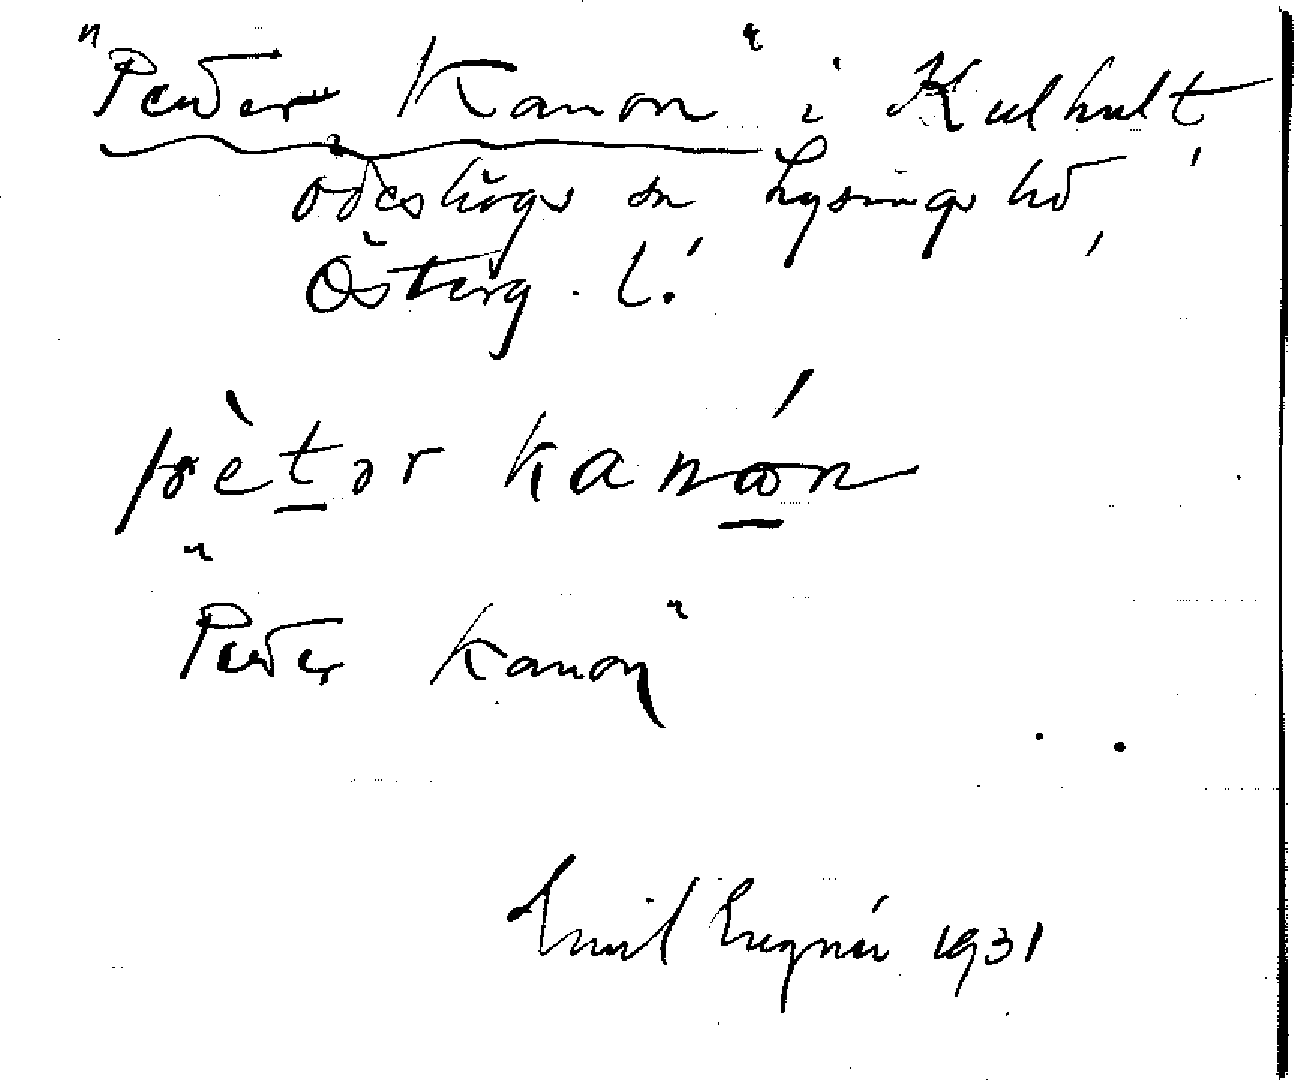 "Petter Kanon" i Kulhult,
Ödeshögs sn Lysings hd,
Österg. l.
pètər kanón
"Petter Kanon"
Emil 1931